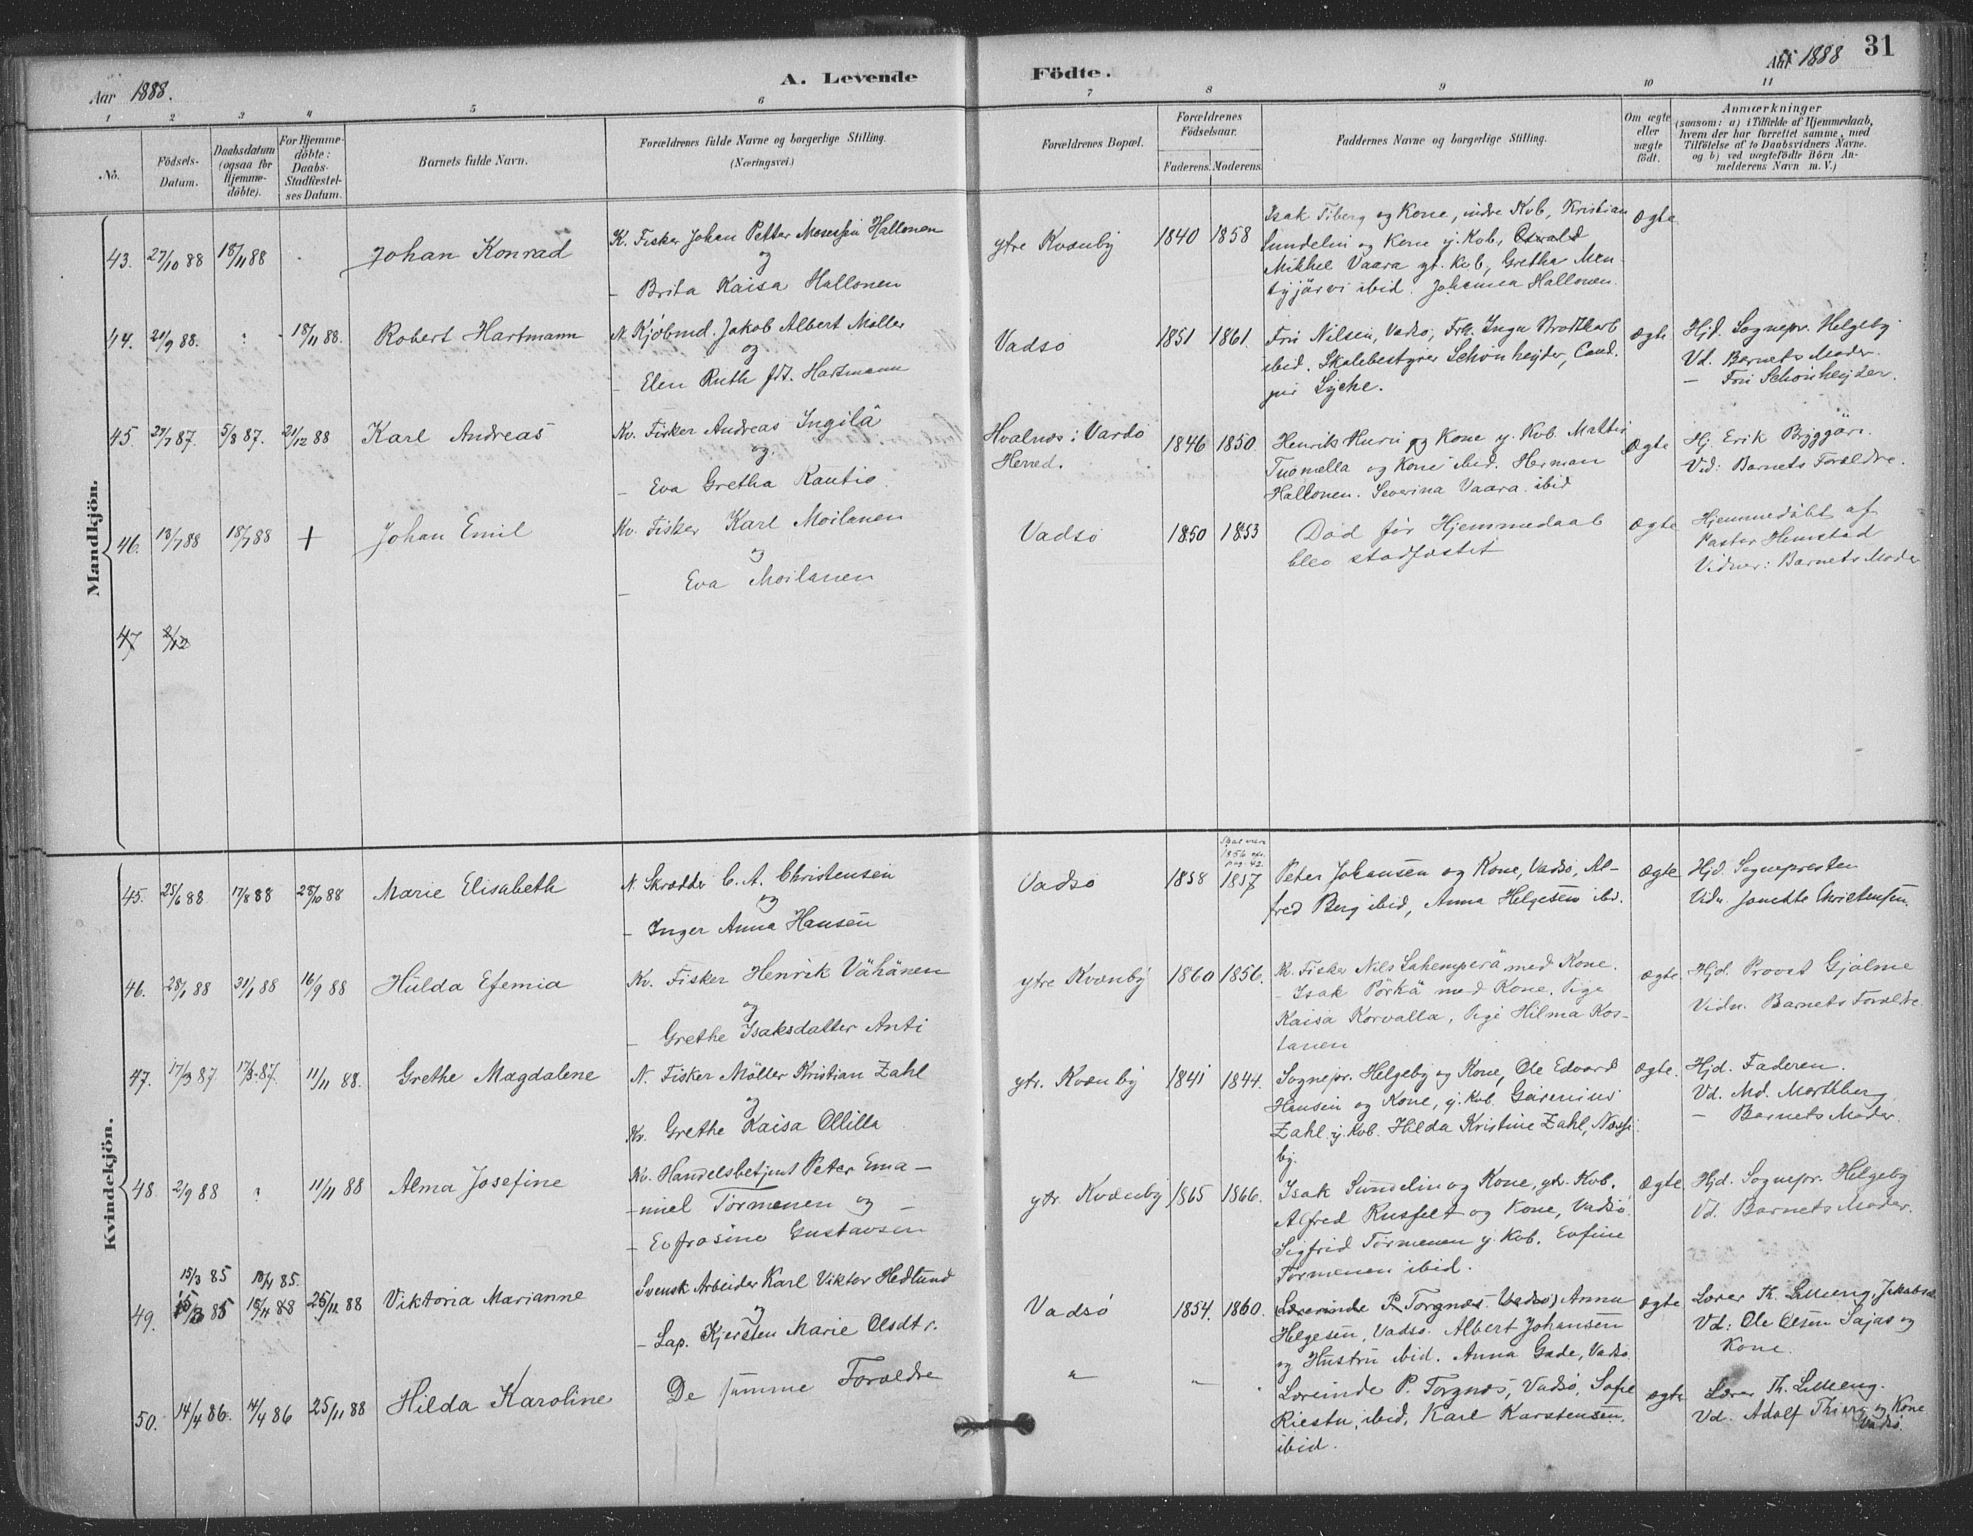 Aar 1888.
A. Levende
Födte.
Aar 1888
31
1 2 3 4 5 6 7 8 9 10 11
No.
Födsels-
Datum.
Daabsdatum
(ogsaa for
Hjemme-
döbte).
For Hjemme-
döbte:
Daabs-
Stadfæstel-
ses Datum.
Barnets fulde Navn.
Forældrenes fulde Navne og borgerlige Stilling.
(Næringsvei.)
Forældrenes Bopæl.
Forældrenes
Födselsaar.
Faderens. Moderens.
Faddernes Navne og borgerlige Stilling.
Om ægte
eller
uægte
født.
Anmærkninger
(saasom: a) i Tilfælde af Hjemmedaab,
hvem der har forrettet samme, med
Tilföielse af to Daabsvidners Navne.
og b) ved uægtefödte Börn An-
melderens Navn m. V.)
Mandkjön.
43. 27/10 88 18/11 88 Johan Konrad
K. Fisker Johan Petter Mosessen Hallonen
og
– Brita Kaisa Hallonen
ytre Kvænby 1840 1858
Isak Tiberg og Kone, indre Kvb, Kristian
Sundelin og Kone y. Kvb, Oswald
Mikkel Vaara yt. Kvb, Gretha Men-
tyjärvi ibid. Johanna Hallonen.
Ægte
44. 21/9 88. . 18/11 88. Robert Hartmann
N. Kjøbmd. Jakob Albert Møller
og
– Elen Ruth fdt. Hartmann
Vadsø 1851 1861.
Fru Nilsen, Vadsø, Frk. Inga Brodtkorb
ibid. Skolebestyrer Schønheyder, Cand.
jur Lyche.
ægte
Hjd. Sognepr. Helgeby
Vd. Barnets Moder.
– Fru Schønheyder.
45. 29/7 87. 5/8 87. 21/12 88 Karl Andreas
Kv. Fisker Andreas Ingilä
og
– Eva Gretha Rautio.
Hvalnæs i Vardø
Herred.
1846 1850
Henrik Huru og Kone y. Kvb. Mattis
Tuomella og Kone ibid. Herman
Hallonen. Severina Vaara ibid
Ægte
Hj. Erik Bryggäri.
Vid: Barnets Forældre.
46. 13/7 88 18/7 88 + Johan Emil
Kv. Fisker Karl Moilanen
og
– Eva Moilanen
Vadsø 1850 1853
Død før Hjemmedaab
blev stadfæstet
Ægte
Hjemmedøbt af
Pastor Hemstad
Vidner: Barnets Moder
47 2/12
Kvindekjön.
45. 25/6 88 17/8 88 28/10 88 Marie Elisabeth
N. Skrædder C. A. Christensen
og
– Inger Anna Hansen
Vadsø 1858
Skal være
1856
pag. 42.
1857
Peter Johansen og Kone, Vadsø, Al-
fred Berg ibid, Anna Helgesen ibd.
ægte
Hjd. Sognepresten
Vidn. Janette Christensen.
46. 28/1 88 31/1 88 16/9 88 Hulda Efemia
Kv. Fisker Henrik Vähänen
og
– Grethe Isaksdatter Anti
ytre Kvænby 1860 1856.
K. Fisker Nils Lahemperä med Kone.
– Isak Pörkä med Kone, Pige
Kaisa Korvalla, Pige Hilma Kos-
tanen
ægte
Hjd. Provst Gjølme
Vidn. Barnets Forældre
47. 17/3 87 17/3 87. 11/11 88. Grethe Magdalene
N. Fisker Møller Kristian Zahl
og
Kv. Grethe Kaisa Ollilla
ytr. Kvænby 1841 1844.
Sognepr. Helgeby og Kone, Ole Edvard
Hansen og Kone, y. Kvb. Gørenius
Zahl y. Kvb. Hilda Kristine Zahl, Næsse-
by.
ægte.
Hjd. Faderen.
Vd. Md. Mortberg
– Barnets Moder.
48. 2/9 88 . 11/11 88 Alma Josefine
Kv. Handelsbetjent Peter Ema-
–nuel Tormenen og –
– Evfrosine Gustavsen
ytr. Kvænby 1865 1866.
Isak Sundelin og Kone, ytr. Kvb.
Alfred Rusfelt og Kone, Vadsø
Sigfrid Tormenen y. Kvb. Evfine
Tormenen ibid.
Ægte
Hjd. Sognepr. Helgeby
Vd. Barnets Moder.
15/3 85 18/4 85.
49. 15/3 85 18/11 88 25/11 88 Viktoria Marianne
Svensk Arbeider Karl Viktor Hedlund
og
– Lap. Kjersten Marie Olsdtr.
Vadsø 1854. 1860.
Lærerinde P. Torgnæs Vadsø, Anna
Helgesen, Vadsø. Albert Johansen
og Hustru ibid. Anna Gade, Vadsø
ægte
Lærer Th. Lilleeng, Jakobs
Vd: Ole Olsen Sajas og
Kone.
50. 14/4 86. 14/4 86 25/11 88 Hilda Karoline
De samme Forældre
" "
Lærinde P. Torgnæs, Vadsø, Sofie
Riesto, ibid, Karl Karstensen,
ibid.
ægte
Lærer Th. Lilleeng.
Vd. Adolf Thierg og Kone
Vadsø.